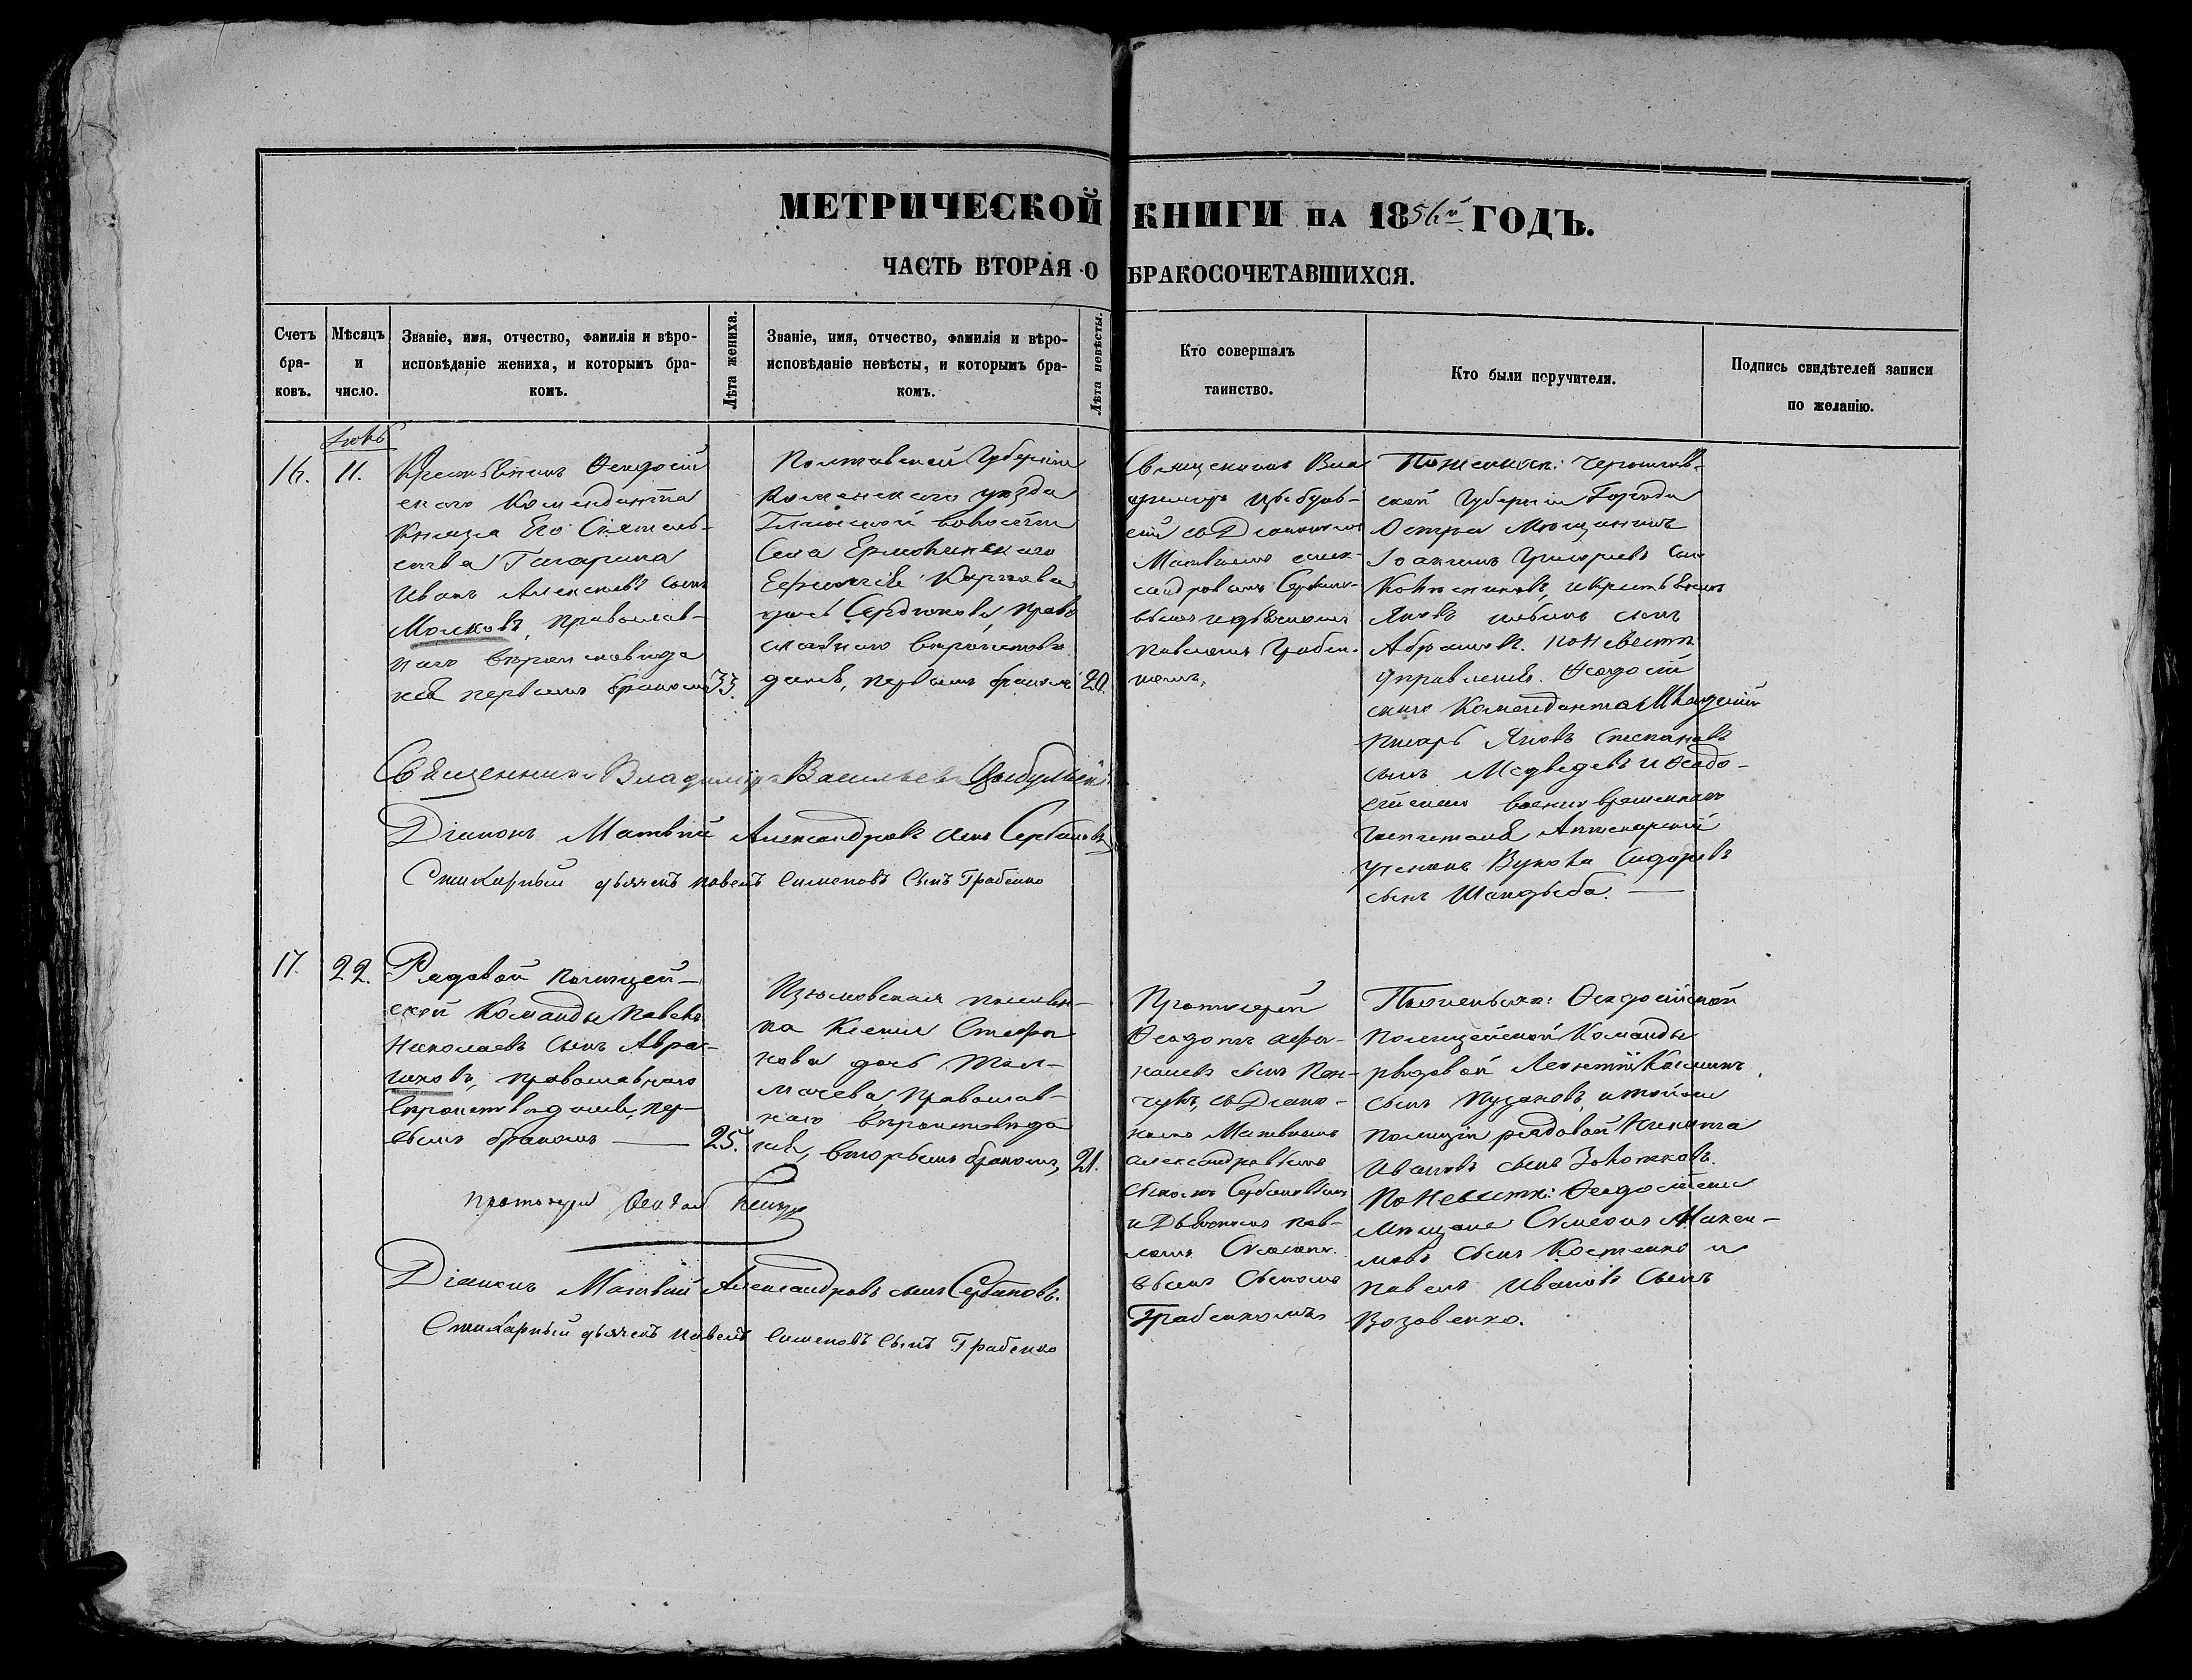 МЕТРИЧЕСКОЙ КНИГИ НА 1856й ГОДЪ.
ЧАСТЬ ВТОРАЯ О БРАКОСОЧЕТАВШИХСЯ.
Счетъ
бра-
ковъ.
Мѣсяцъ
и
число.
Званіе, имя, отчество, фамилія и вѣро-
исповѣданіе жениха, и которымъ бра-
комъ.
Лѣта жениха.
Званіе, имя, отчество, фамилія и вѣро-
исповѣданіе невѣсты, и которымъ бра-
комъ.
Лѣта невѣсты.
Кто совершалъ
таинство.
Кто были поручители.
Подпись свидѣтелей записи
по желанію.
16.
11.
Крестьянинъ Ѳеодосій
скаго Коменданта
Князя Его Сіятель-
ства Гагарина
Иванъ Алексѣевъ сынъ
Молковъ, православ-
наго вѣроисповѣда
нія первымъ бракомъ
33.
Полтавской Губерніи
Роменскаго уѣзда
Глинской волости
Села
дочь Сердюкова, право
славнаго вѣроисповѣ
данія, первымъ бракомъ
20.
Священникъ Вла
димиръ Цыбуль-
скій съ Діакономъ
Матвѣемъ Алек-
сандровымъ Сербино-
вымъ и дьячкомъ
Павломъ Грабен-
комъ,
По женихѣ: Чернигов-
ской Губерніи Города
Остра Мѣщанинъ
Іоакимъ Григорьевъ сынъ
и крестьянинъ
Яковъ сынъ
Абрамовъ. по невѣстѣ
Управленія Ѳеодосій
скаго Коменданта Младшій
писарь Яковъ Степановъ
сынъ Медведевъ и Ѳеодо-
сійскаго военно временнаго
госпиталя Аптекарскій
ученикъ Вукола Сидоровъ
сынъ Шандыба.
Священникъ Владиміръ Васильевъ Цыбульскій
Діаконъ Матвѣй Александровъ сынъ Сербиновъ
Стихарный дьячекъ Павелъ Симеоновъ Сынъ Грабенко
17.
22.
Рядовой полицей-
ской Команды Павелъ
Николаевъ сынъ Авра-
меновъ, православнаго
вѣроисповѣданія, пер-
вымъ бракомъ
25.
Изюмовская поселян-
ка Ксенія Стефа
нова дочь Тол-
мачева православ-
наго вѣроисповѣда
нія, вторымъ бракомъ,
21.
Протоіерей
Ѳеодотъ Афа-
насьевъ сынъ
съ Діако-
номъ Матвѣемъ
Александровымъ
сыномъ Сербиновымъ
и Дьячкомъ Пав-
ломъ Симеоно-
вымъ сыномъ
Грабенкомъ
По женихѣ: Ѳеодосійской
полицейской Команды
рядовой Леонтій Косминъ
сынъ Пузановъ, и той же
полиціи рядовой Никита
Ивановъ сынъ Золотковъ.
По невѣстѣ: Ѳеодосійскіе
мѣщане Симеонъ Макси-
мовъ сынъ Костенко и
Павелъ Ивановъ сынъ
Возовенко.
Протоіерей Ѳеодотъ
Діаконъ Матвѣй Александровъ сынъ Сербиновъ.
Стихарный дьячекъ Павелъ Симеоновъ Сынъ Грабенко